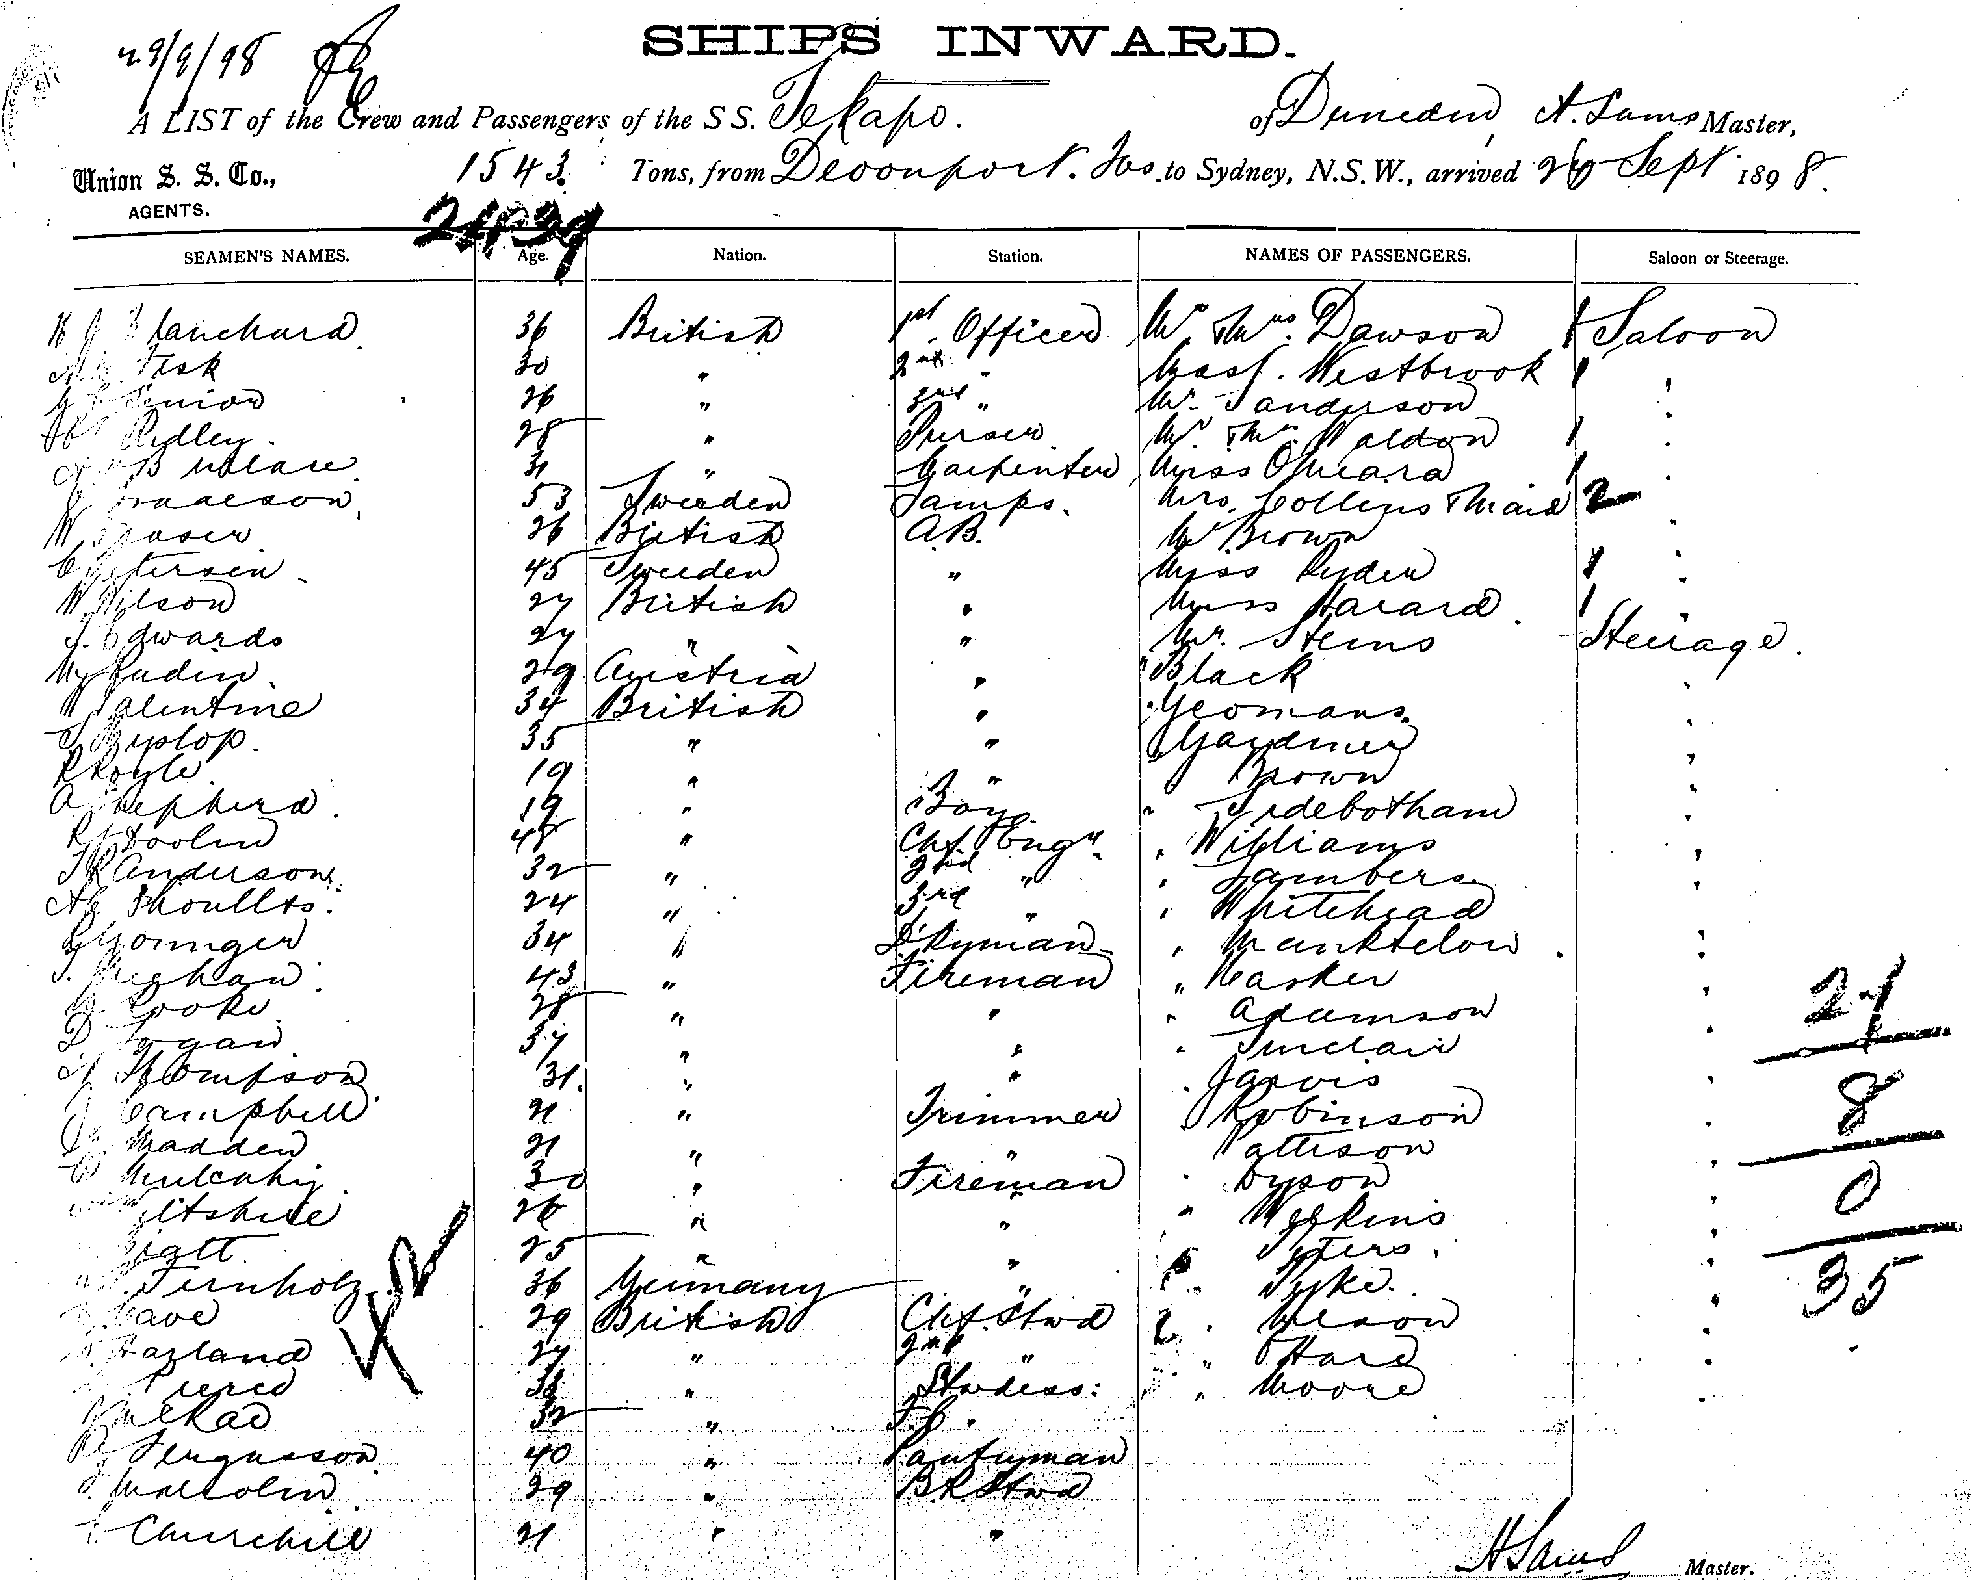 29/9/98
SHIPS INWARD.
A LIST of the Crew and Passengers of the S S. Tekapo. of Dunedin, A. Sams Master,
Union S. S. Co., 1543. Tons, from Devonport. Tas. to Sydney, N.S.W., arrived 26 Sept. 1898.
AGENTS.
SEAMEN'S NAMES. Age. Nation. Station. NAMES OF PASSENGERS. Saloon or Steerage.
Blanchard 36 British 1st Officer Mr & Mrs. Dawson 1 Saloon
Fisk 30 " 2nd " Mast. Westbrook 1 "
Senior 26 " 3rd " Mr. Sanderson "
Ridley. 28 " Purser Mr & Mrs Waldon 1 "
31 " Carpenter Miss O'Meara 1 "
Isaacson 53 Sweeden Lamps. Mrs. Collins & Maid 2 "
W Fraser 26 British A.B. Mr Brown "
C Petersen 45 Sweeden " Miss Ryder 1 "
W Wilson 27 British " Miss 1 "
J. Edwards 27 " " Mr. Steins Steerage.
29 Austria " " Black "
Valentine 34 British " " Yeomans. "
J Hyslop. 35 " " " Gardiner "
R Royle 19 " " Brown "
A Shepherd. 19 " Boy. " Sidebotham "
Doolin 48 " Chf. Engr. " Williams "
Anderson. 32 " 2nd " " Lambers. "
Shoullts. 24 " 3rd " " Whitehead "
Younger 34 " D'kyman " Manktelow. "
J. Meehan. 43 " Fireman " Harker "
Cooke 28 " " " Adamson "
D Logan 37 " " " Sinclair "
Thompson 31. " " " Jarvis "
Campbell 21 " Trimmer Robinson "
Madden 21 " " Pattison "
Mulcahy. 30 " Fireman " Dyson "
Wiltshire 26 " " " "
Pratt 25 " " Peters. "
Fernholz 36 Germany " " Pyke. "
Cave 29 British Chf. Stwd 2 " Nelson "
Harland 27 " 2nd " " O'Hara "
Pierce 38 " Stwdess. " Moore "
32 "
Fergusson 40 " Pantryman
Malcolm. 29 " B R Stwd
Churchill 21 " "
24
8
0
35
A Sams Master.